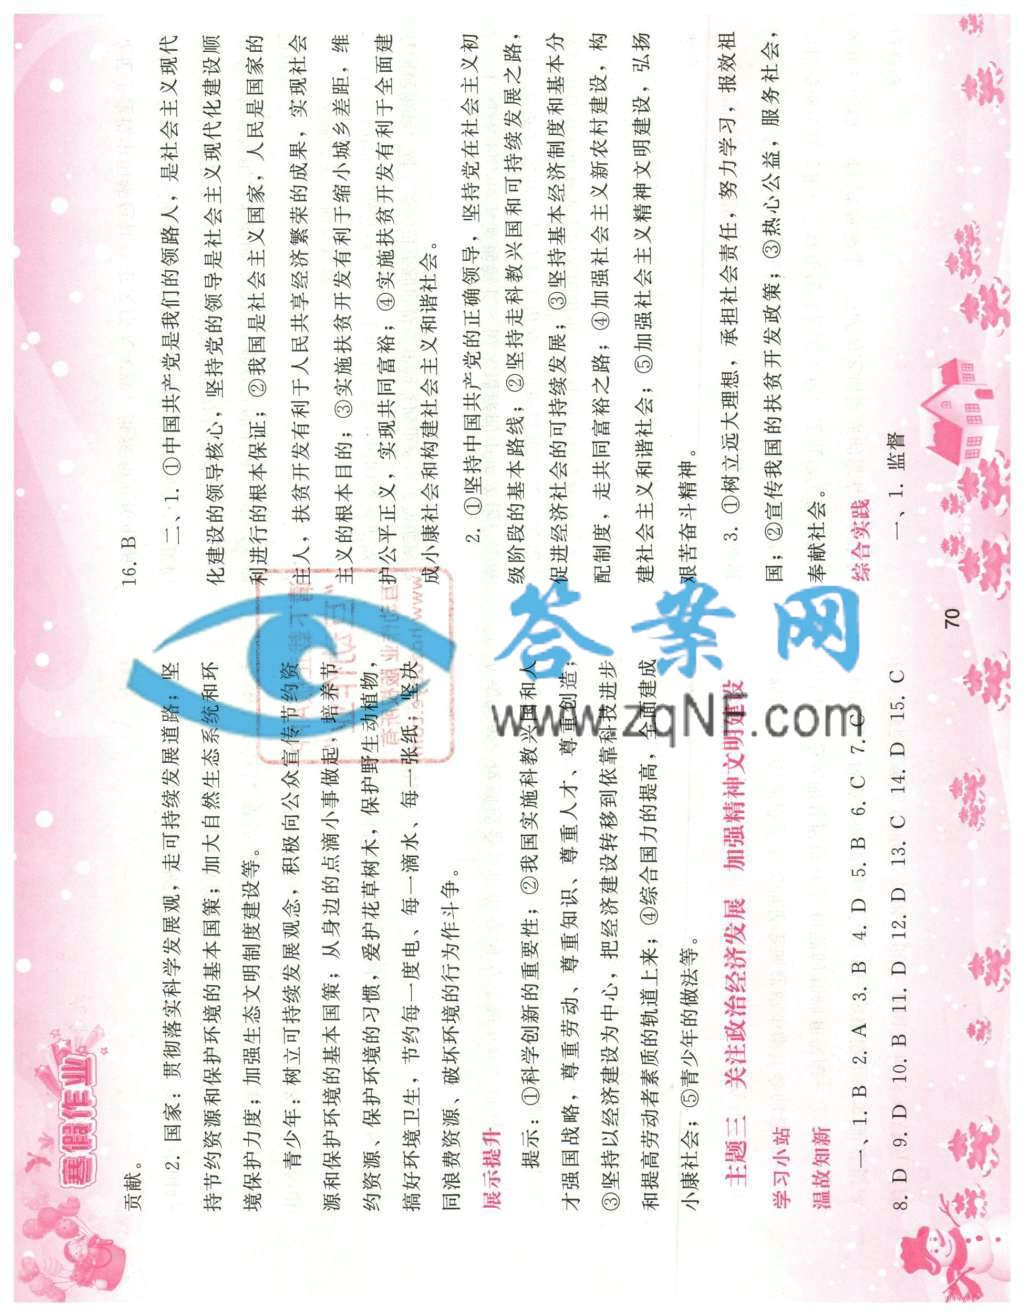 寒假作业
贡献。
2. 国家：贯彻落实科学发展观，走可持续发展道路；坚
持节约资源和保护环境的基本国策；加大自然生态系统和环
境保护力度；加强生态文明制度建设等。
青少年：树立可持续发展观念，积极向公众宣传节约资
源和保护环境的基本国策；从身边的点滴小事做起，培养节
约资源、保护环境的习惯，爱护花草树木，保护野生动植物，
搞好环境卫生，节约每一度电、每一滴水、每一张纸；坚决
同浪费资源、破坏环境的行为作斗争。
展示提升
提示：①科学创新的重要性；②我国实施科教兴国和人
才强国战略，尊重劳动、尊重知识、尊重人才、尊重创造；
③坚持以经济建设为中心，把经济建设转移到依靠科技进步
和提高劳动者素质的轨道上来；④综合国力的提高，全面建成
小康社会；⑤青少年的做法等。
主题三 关注政治经济发展 加强精神文明建设
学习小站
温故知新
一、1. B 2. A 3. B 4. D 5. B 6. C 7. C
8. D 9. D 10. B 11. D 12. D 13. C 14. D 15. C
16. B
二、1. ①中国共产党是我们的领路人，是社会主义现代
化建设的领导核心，坚持党的领导是社会主义现代化建设顺
利进行的根本保证；②我国是社会主义国家，人民是国家的
主人，扶贫开发有利于人民共享经济繁荣的成果，实现社会
主义的根本目的；③实施扶贫开发有利于缩小城乡差距，维
护公平正义，实现共同富裕；④实施扶贫开发有利于全面建
成小康社会和构建社会主义和谐社会。
2. ①坚持中国共产党的正确领导，坚持党在社会主义初
级阶段的基本路线；②坚持走科教兴国和可持续发展之路，
促进经济社会的可持续发展；③坚持基本经济制度和基本分
配制度，走共同富裕之路；④加强社会主义新农村建设，构
建社会主义和谐社会；⑤加强社会主义精神文明建设，弘扬
艰苦奋斗精神。
3. ①树立远大理想，承担社会责任，努力学习，报效祖
国；②宣传我国的扶贫开发政策；③热心公益，服务社会，
奉献社会。
综合实践
一、1. 监督
70
答案网
www.zqNf.com